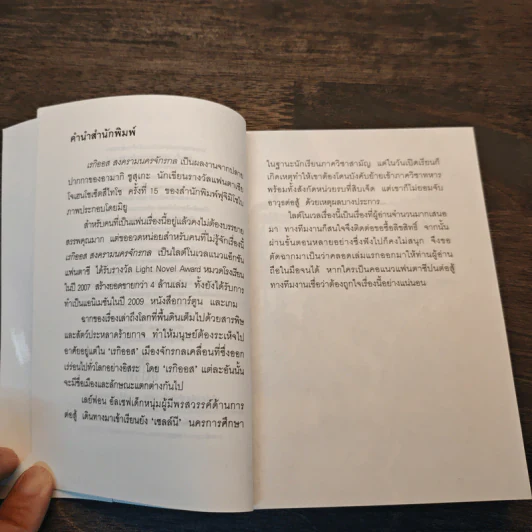 คำนำสำนักพิมพ์
เรกิออส สงครามนครจักรกล เป็นผลงานจากปลาย
ปากกาของอามากิ ชูสุเกะ นักเขียนรางวัลแฟนตาเซีย
โจเฮนโชเซ็ตสึไทโช ครั้งที่ 15 ของสำนักพิมพ์ฟุจิมิโชโบ
ภาพประกอบโดยมิยู
สำหรับคนที่เป็นแฟนเรื่องนี้อยู่แล้วคงไม่ต้องบรรยาย
สรรพคุณมาก แต่ขออวดหน่อยสำหรับคนที่ไม่รู้จักเรื่องนี้
เรกิออส สงครามนครจักรกล เป็นไลต์โนเวลแนวแอ๊กชัน
แฟนตาซี ได้รับรางวัล Light Novel Award หมวดโรงเรียน
ในปี 2007 สร้างยอดขายกว่า 4 ล้านเล่ม ทั้งยังได้รับการ
ทำเป็นแอนิเมชันในปี 2009 หนังสือการ์ตูน และเกม
ฉากของเรื่องเล่าถึงโลกที่พื้นดินเต็มไปด้วยสารพิษ
และสัตว์ประหลาดร้ายกาจ ทำให้มนุษย์ต้องระเห็จไป
อาศัยอยู่แต่ใน 'เรกิออส' เมืองจักรกลเคลื่อนที่ซึ่งออก
เร่ร่อนไปทั่วโลกอย่างอิสระ โดย 'เรกิออส' แต่ละอันนั้น
จะมีชื่อเมืองและลักษณะแตกต่างกันไป
เลย์ฟอน อัลเซฟเด็กหนุ่มผู้มีพรสวรรค์ด้านการ
ต่อสู้ เดินทางมาเข้าเรียนยัง 'เซลล์นี' นครการศึกษา
ในฐานะนักเรียนภาควิชาสามัญ แต่ในวันเปิดเรียนก็
เกิดเหตุทำให้เขาต้องโดนบังคับย้ายเข้าภาควิชาทหาร
พร้อมทั้งสังกัดหน่วยรบที่สิบเจ็ด แต่เขาก็ไม่ยอมจับ
อาวุธต่อสู้ ด้วยเหตุผลบางประการ...
ไลต์โนเวลเรื่องนี้เป็นเรื่องที่ผู้อ่านจำนวนมากเสนอ
มา ทางทีมงานก็สนใจจึงติดต่อขอซื้อลิขสิทธิ์ จากนั้น
ผ่านขั้นตอนหลายอย่างซึ่งฟังไปก็คงไม่สนุก จึงขอ
คัดฉากมาเป็นว่าคลอดเล่มแรกออกมาให้ท่านผู้อ่าน
ถือในมือจนได้ หากใครเป็นคอแนวแฟนตาซีปนต่อสู้
ทางทีมงานเชื่อว่าต้องถูกใจเรื่องนี้อย่างแน่นอน